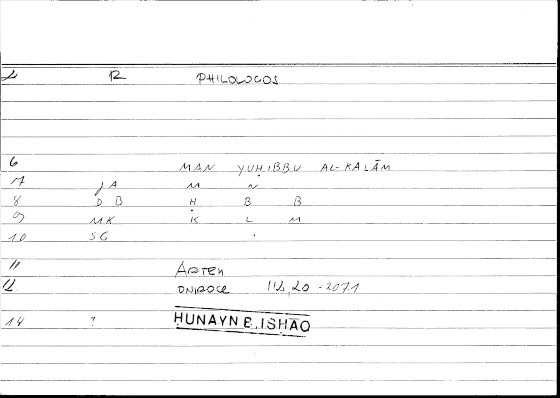 2 R PHILOLOGOS
6 MAN YUḤIBBU AL-KALĀM
7 JA M N
8 DB Ḥ B B
9 MK K L M
10 SG
11 ARTEM
12 ONIROCR 112,20-2071
14 ? HUNAYN B. ISHAQ